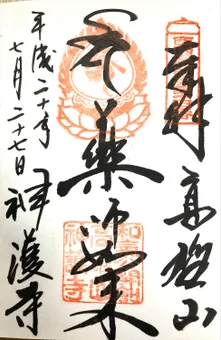 奉拝 高雄山
薬師如来
神護寺
平成二十年
七月二十七日